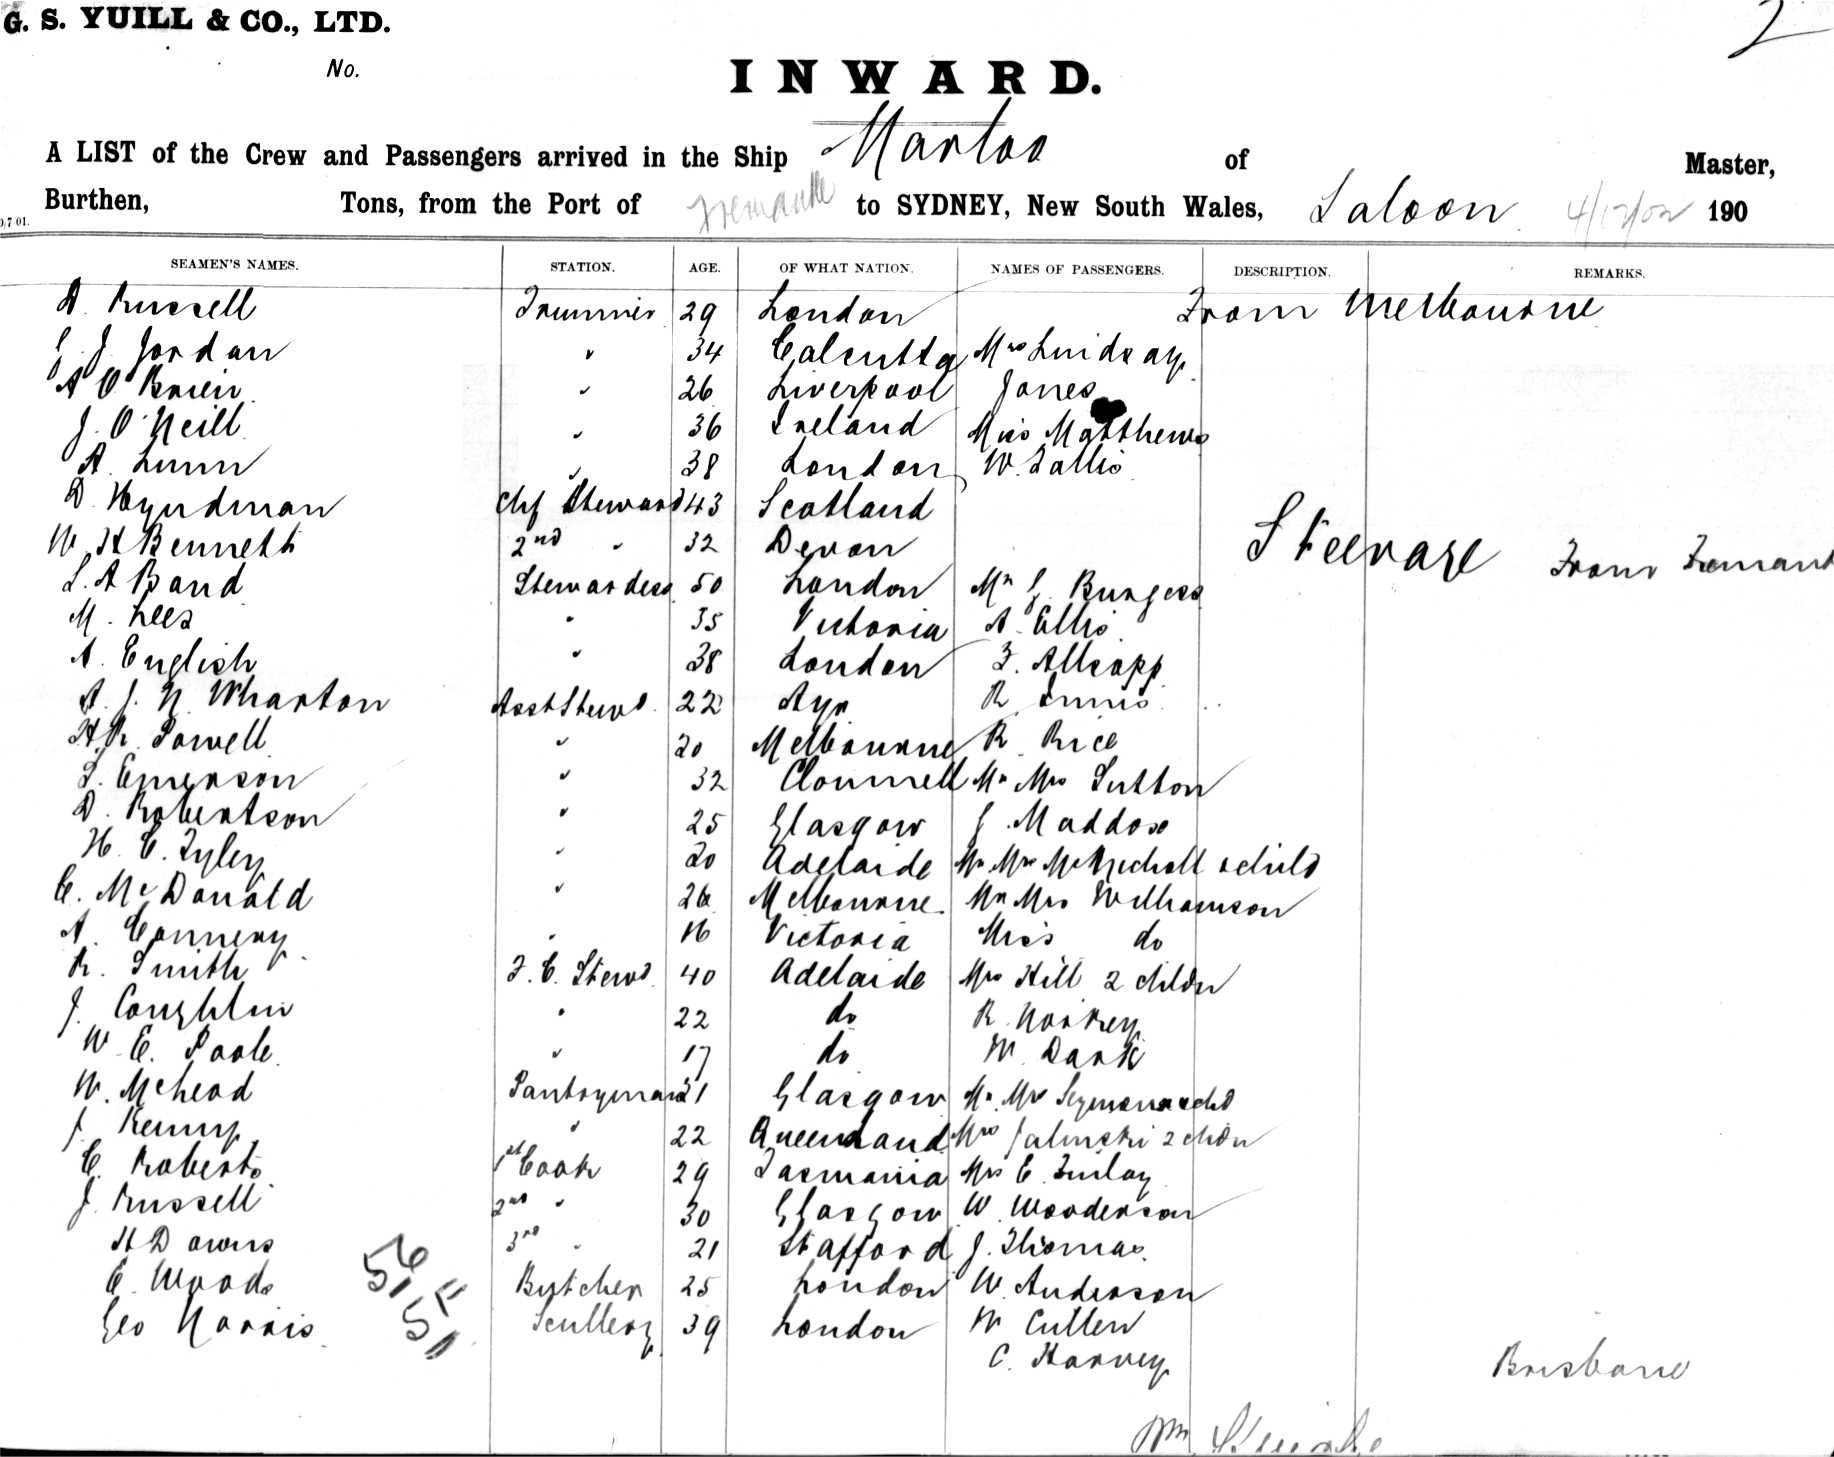 G. S. YUILL & CO., LTD.
2
No.
INWARD.
A LIST of the Crew and Passengers arrived in the Ship Marloo of Master,
Burthen, Tons, from the Port of Fremantle to SYDNEY, New South Wales, Saloon 4/12/02 190
SEAMEN'S NAMES. STATION. AGE. OF WHAT NATION. NAMES OF PASSENGERS. DESCRIPTION. REMARKS.
D. Russell Trimmer 29 London From Melbourne
J. Jordan " 34 Calcutta Mrs Lindsay
A O'Brien " 26 Liverpool Jones
J. O'Neill " 36 Ireland Miss Matthews
A. Lunn " 38 London W. Fallis
D. Hyndman Chf Steward 43 Scotland
W H Bennett 2nd " 32 Devon Steerage From Fremant
L. A Band Stewardess 50 London Mr J. Burgess
M. Lees " 35 Victoria A. Ellis
A. English " 38 London F. Allsopp
A. J. N. Wharton Asst Stewd. 22 Ayr R. Innis
H. R. Powell " 20 Melbourne R. Rice
S. Emerson " 32 Clonmell Mr Mrs Sutton
D. Robertson " 25 Glasgow J. Maddox
H. C. Tyley " 20 Adelaide Mr Mrs McNicholl & child
C. McDonald " 26 Melbourne Mr Mrs Williamson
A. Connery " 16 Victoria Miss do
R. Smith F. C. Stewd. 40 Adelaide Mrs Hill 2 childn
J. Coughlin " 22 do R.
W. E. Poole " 17 do W. Dark
W. McLeod Pantryman 21 Glasgow Mr Mrs
J. Kenny " 22 Queensland Mrs Jalinski 2 chdn
C. Roberts 1st Cook 29 Tasmania Mrs E. Finlay
J. Russell 2nd " 30 Glasgow W. Wooderson
H Downs 3rd " 21 Stafford J. Thomas
E. Woods Butcher 25 London W. Anderson
Geo Norris Scullery 39 London W Cullen
C. Harvey
Brisbane